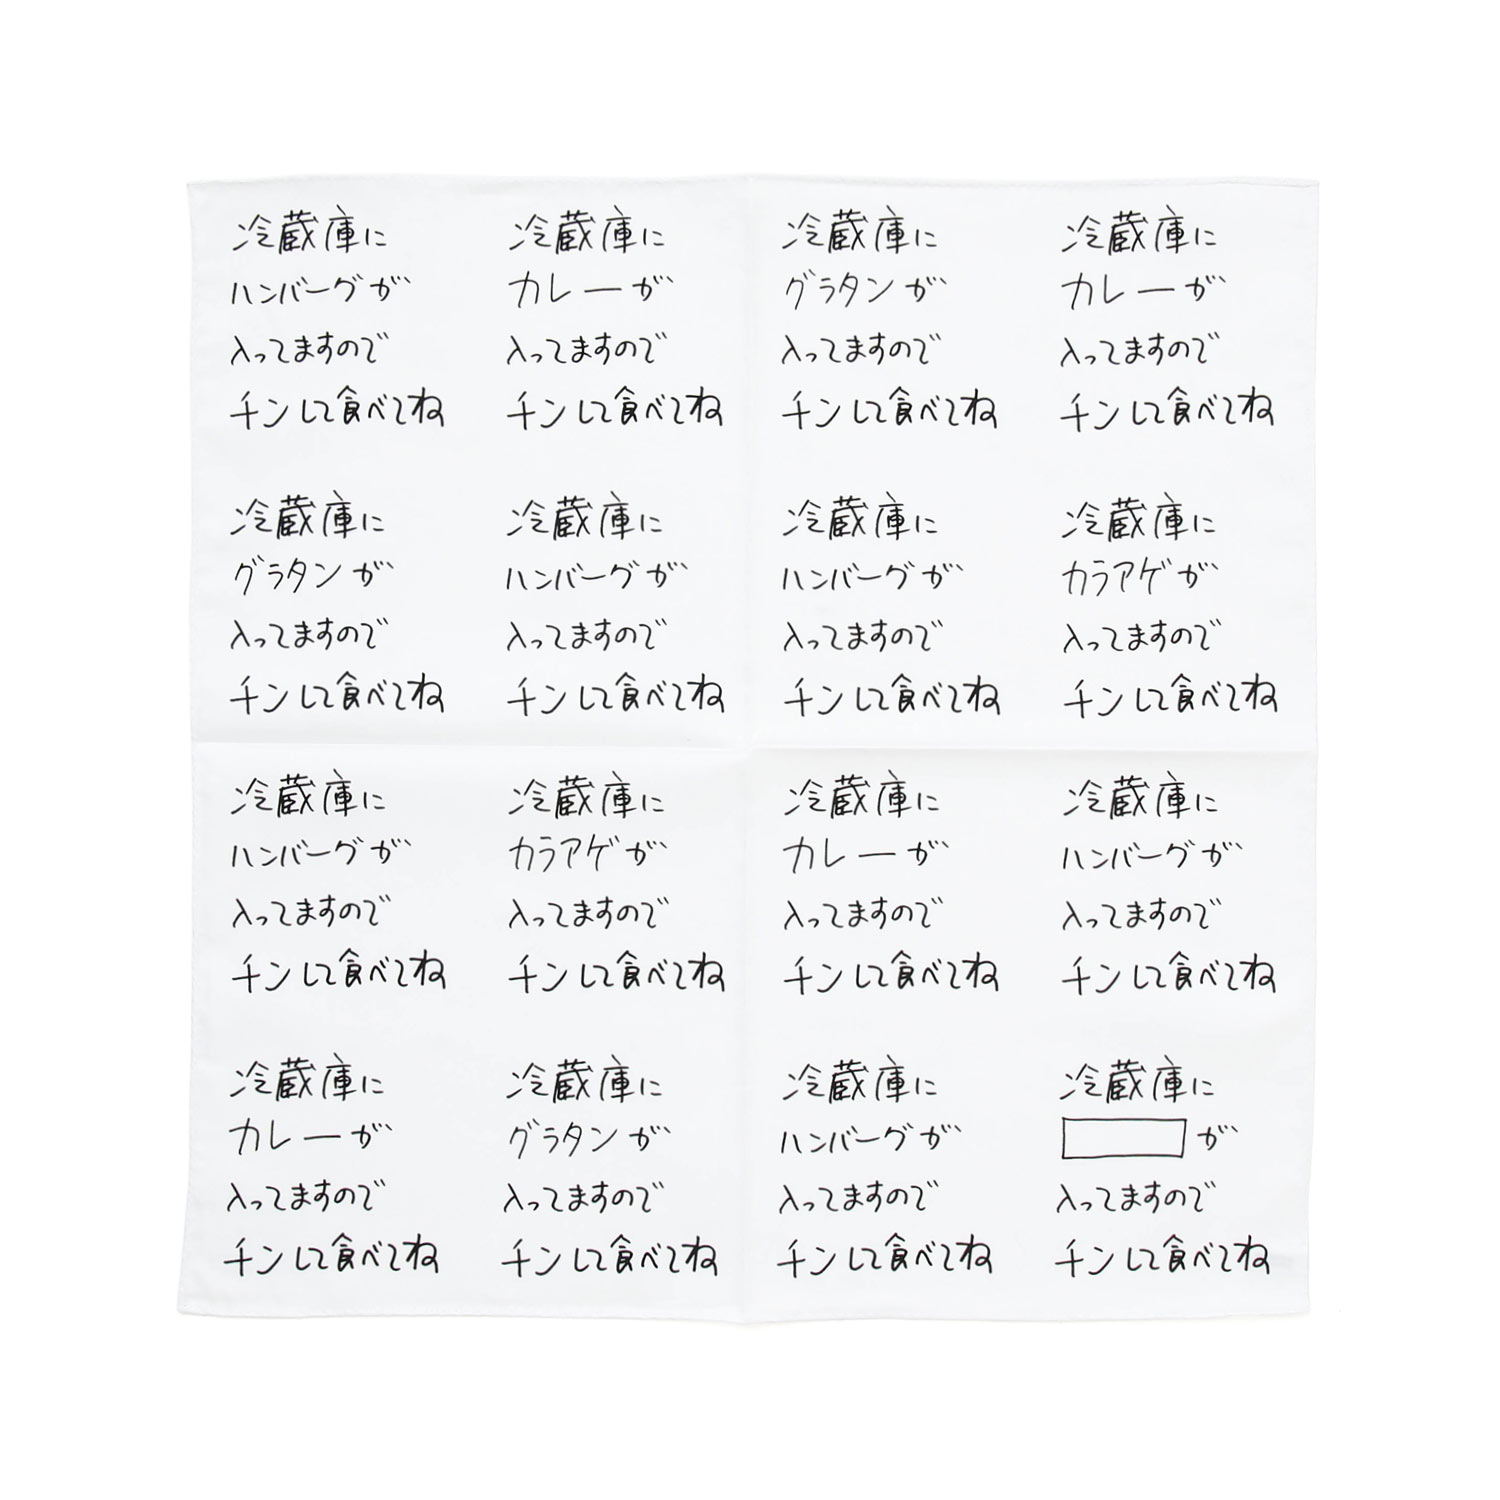 冷蔵庫に
ハンバーグが
入ってますので
チンして食べてね
冷蔵庫に
カレーが
入ってますので
チンして食べてね
冷蔵庫に
グラタンが
入ってますので
チンして食べてね
冷蔵庫に
カレーが
入ってますので
チンして食べてね
冷蔵庫に
グラタンが
入ってますので
チンして食べてね
冷蔵庫に
ハンバーグが
入ってますので
チンして食べてね
冷蔵庫に
ハンバーグが
入ってますので
チンして食べてね
冷蔵庫に
カラアゲが
入ってますので
チンして食べてね
冷蔵庫に
ハンバーグが
入ってますので
チンして食べてね
冷蔵庫に
カラアゲが
入ってますので
チンして食べてね
冷蔵庫に
カレーが
入ってますので
チンして食べてね
冷蔵庫に
ハンバーグが
入ってますので
チンして食べてね
冷蔵庫に
カレーが
入ってますので
チンして食べてね
冷蔵庫に
グラタンが
入ってますので
チンして食べてね
冷蔵庫に
ハンバーグが
入ってますので
チンして食べてね
冷蔵庫に
が
入ってますので
チンして食べてね